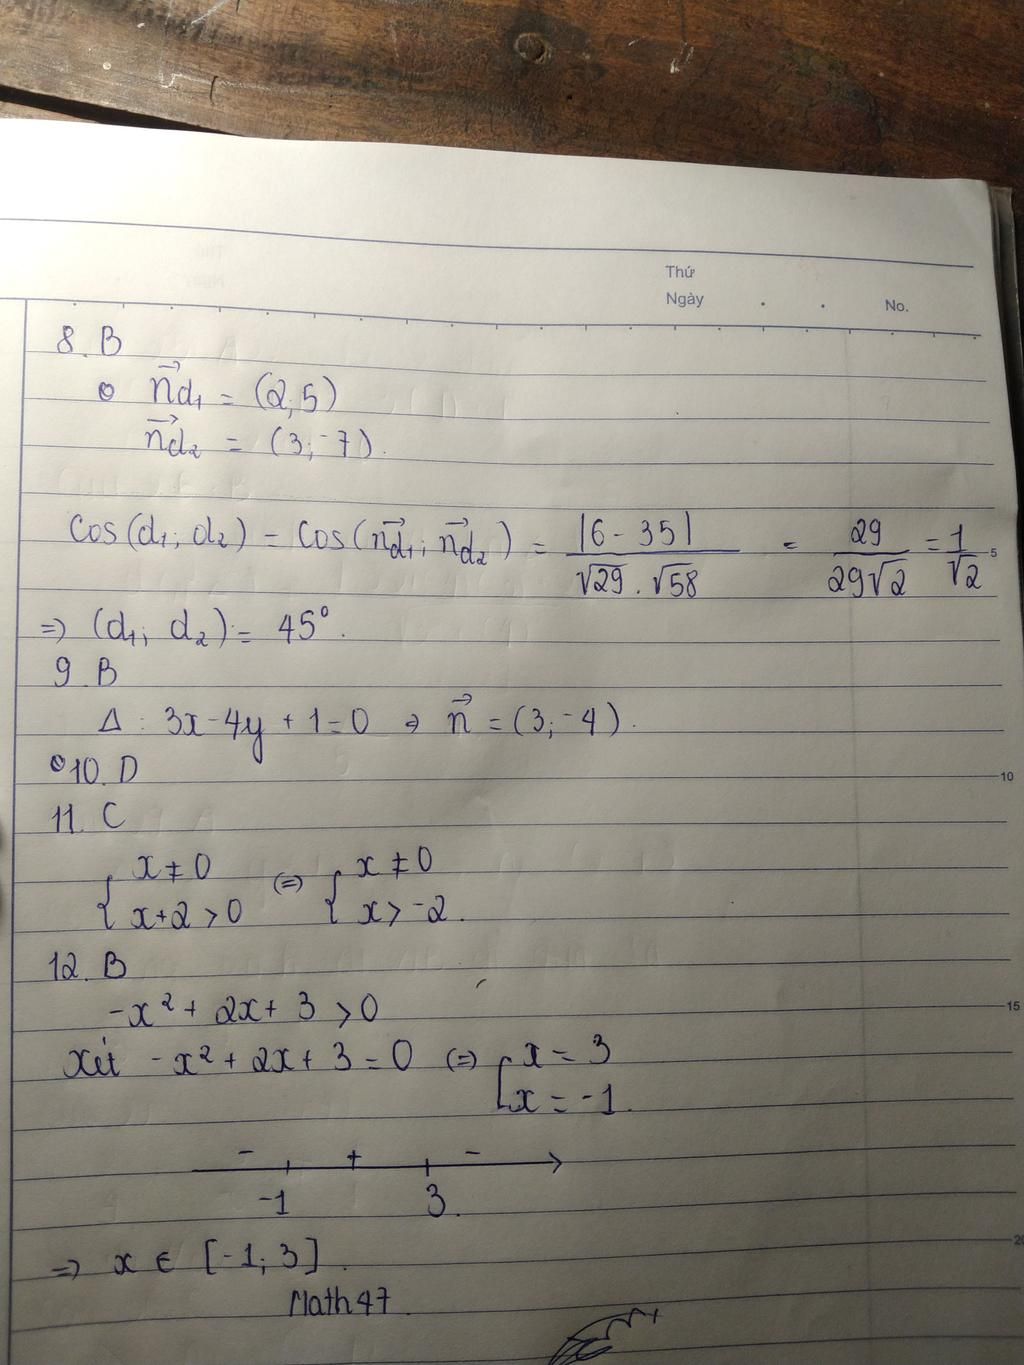 Thứ
Ngày . . No.
8. B
n⃗d₁ = (2,5)
n⃗d₂ = (3;-7).
Cos(d₁; d₂) = Cos(n⃗d₁; n⃗d₂) = |6 - 35| / √29 . √58 = 29 / 29√2 = 1 / √2
5
=> (d₁; d₂) = 45°.
9. B
Δ : 3x - 4y + 1 = 0 => n⃗ = (3;-4).
10. D
10
11. C
{ x ≠ 0 (=) { x ≠ 0
x+2 > 0 x > -2.
12. B
-x² + 2x + 3 > 0
15
xét -x² + 2x + 3 = 0 (=) [ x = 3
x = -1.
- + -
-1 3.
=> x ∈ [-1; 3].
20
Math47.